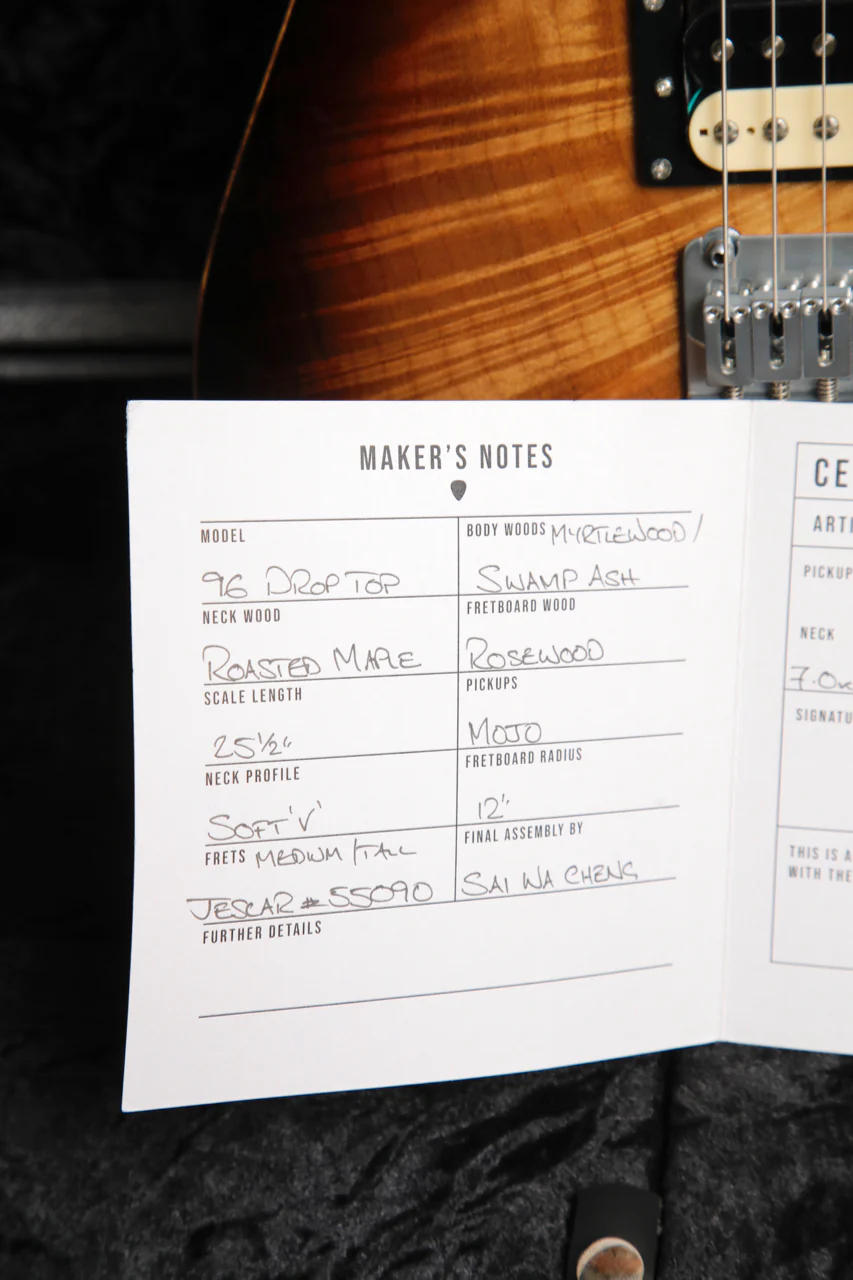 MAKER'S NOTES
MODEL
96 DROP TOP
BODY WOODS MYRTLEWOOD /
SWAMP ASH
NECK WOOD
ROASTED MAPLE
FRETBOARD WOOD
ROSEWOOD
SCALE LENGTH
25½"
PICKUPS
MOJO
NECK PROFILE
SOFT 'V'
FRETBOARD RADIUS
12"
FRETS MEDIUM / TALL
JESCAR #55090
FINAL ASSEMBLY BY
SAI WA CHENG
FURTHER DETAILS
CE
ARTI
PICKUP
NECK
7.0
SIGNATU
THIS IS A
WITH THE